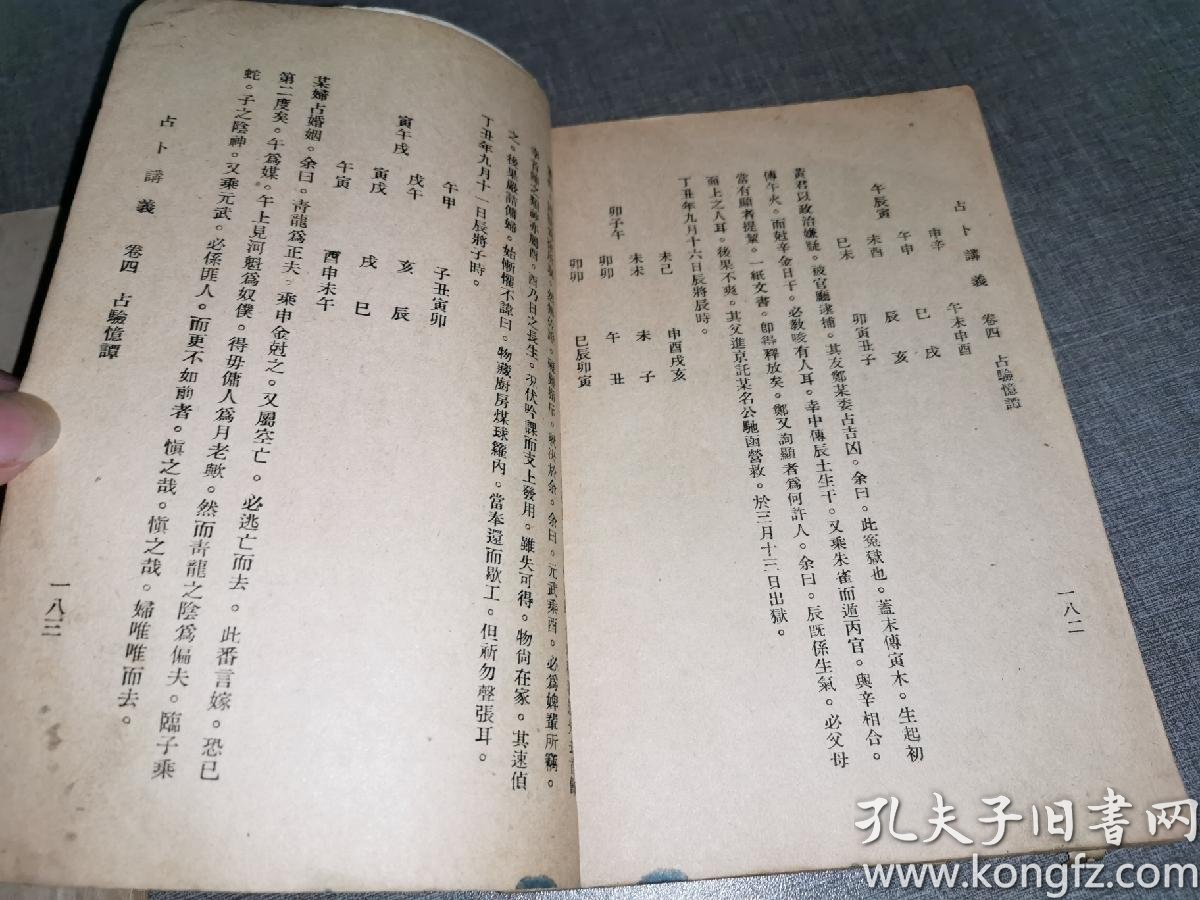 占卜講義　卷四　占驗憶譚
一八二
申辛　午未申酉
午申　巳　戌
午辰寅　未酉　辰　亥
巳未　卯寅丑子
黃君以政治嫌疑。被官廳逮捕。其友鄭某委占吉凶。余曰。此冤獄也。蓋末傳寅木。生起初
傳午火。而尅辛金日干。必教唆有人耳。幸中傳辰土生干。又乘朱雀而遁丙官。與辛相合。
當有顯者提挈。一紙文書。卽得釋放矣。鄭又詢顯者爲何許人。余曰。辰旣係生氣。必父母
而上之人耳。後果不爽。其父進京託某名公馳函營救。於三月十三日出獄。
丁丑年九月十六日辰將辰時。
未己　申酉戌亥
未未　未　子
卯子午　卯卯　午　丑
卯卯　巳辰卯寅
余曰。元武乘酉。必爲婢輩所竊。
酉乃日之長生。况伏吟課而支上發用。雖失可得。物尙在家。其速偵
之。後果嚴詰傭婦。始慚懼不諱曰。物藏厨房煤球籮內。當奉還而歇工。但祈勿聲張耳。
丁丑年九月十一日辰將子時。
午甲　子丑寅卯
戌午　亥　辰
寅午戌　寅戌　戌　巳
午寅　酉申未午
某婦占婚姻。余曰。靑龍爲正夫。乘申金尅之。又屬空亡。必逃亡而去。此番言嫁。恐已
第二度矣。午爲媒。午上見河魁爲奴僕。得毋傭人爲月老歟。然而靑龍之陰爲偏夫。臨子乘
蛇。子之陰神。又乘元武。必係匪人。而更不如前者。愼之哉。愼之哉。婦唯唯而去。
占卜講義　卷四　占驗憶譚
一八三
孔夫子旧书网
www.kongfz.com